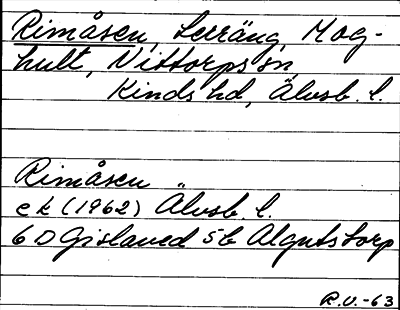 Rimåsen, terräng, Mog-
hult, Nittorps sn,
Kinds hd, Älvsb. l.
Rimåsen
ek (1962) Älvsb. l.
6D Gislaved 5b Algutstorp
R.V.-63